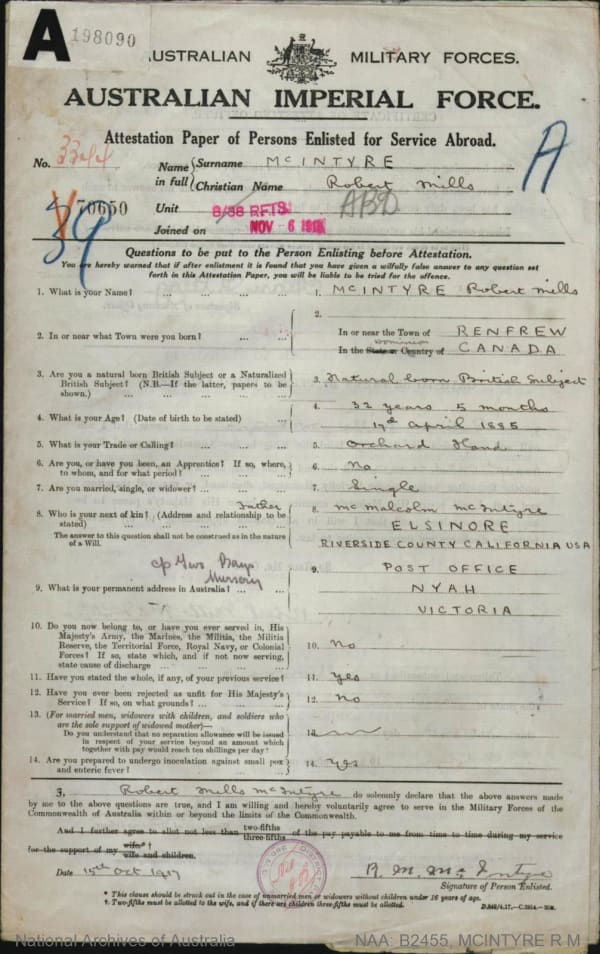 A 198090
AUSTRALIAN MILITARY FORCES.
AUSTRALIAN IMPERIAL FORCE.
Attestation Paper of Persons Enlisted for Service Abroad.
A
No. 3344
Name in full { Surname McINTYRE
Christian Name Robert Mills
ABD
70650
39
Unit 8/38 RFTS.
Joined on NOV 6 191
Questions to be put to the Person Enlisting before Attestation.
You are hereby warned that if after enlistment it is found that you have given a wilfully false answer to any question set
forth in this Attestation Paper, you will be liable to be tried for the offence.
1. What is your Name? ... ... ... ... 1. McINTYRE Robert Mills
2. In or near what Town were you born? ... ... 2. In or near the Town of RENFREW
In the State or Dominion Country of CANADA
3. Are you a natural born British Subject or a Naturalized
British Subject? (N.B.—If the latter, papers to be
shown.) 3. Natural born British Subject
4. What is your Age? (Date of birth to be stated) ... 4. 32 years 5 months
17th April 1885
5. What is your Trade or Calling? ... ... ... 5. Orchard Hand
6. Are you, or have you been, an Apprentice? If so, where,
to whom, and for what period? ... ... ... 6. No
7. Are you married, single, or widower? ... ... ... 7. Single
8. Who is your next of kin? (Address and relationship to be
stated) Father
The answer to this question shall not be construed as in the nature
of a Will.
8. Mr Malcolm McIntyre
ELSINORE
RIVERSIDE COUNTY CALIFORNIA USA
c/o Two Bays
Nursery
9. What is your permanent address in Australia? ... ... 9. POST OFFICE
NYAH
VICTORIA
10. Do you now belong to, or have you ever served in, His
Majesty's Army, the Marines, the Militia, the Militia
Reserve, the Territorial Force, Royal Navy, or Colonial
Forces? If so, state which, and if not now serving,
state cause of discharge ... ... ... 10. No
11. Have you stated the whole, if any, of your previous service? 11. Yes
12. Have you ever been rejected as unfit for His Majesty's
Service? If so, on what grounds? ... ... ... 12. No
13. (For married men, widowers with children, and soldiers who
are the sole support of widowed mother)—
Do you understand that no separation allowance will be issued
in respect of your service beyond an amount which
together with pay would reach ten shillings per day?
13.
14. Are you prepared to undergo inoculation against small pox
and enteric fever? ... ... ... ... 14. Yes
I, Robert Mills McIntyre do solemnly declare that the above answers made
by me to the above questions are true, and I am willing and hereby voluntarily agree to serve in the Military Forces of the
Commonwealth of Australia within or beyond the limits of the Commonwealth.
And I further agree to allot not less than two-fifths three-fifths of the pay payable to me from time to time during my service
for the support of my wife* † wife and children.
Date 15th Oct 1917
R. M. McIntyre
Signature of Person Enlisted.
* This clause should be struck out in the case of unmarried men or widowers without children under 16 years of age.
†. Two-fifths must be allotted to the wife, and if there are children three-fifths must be allotted.
National Archives of Australia
NAA: B2455, MCINTYRE R M